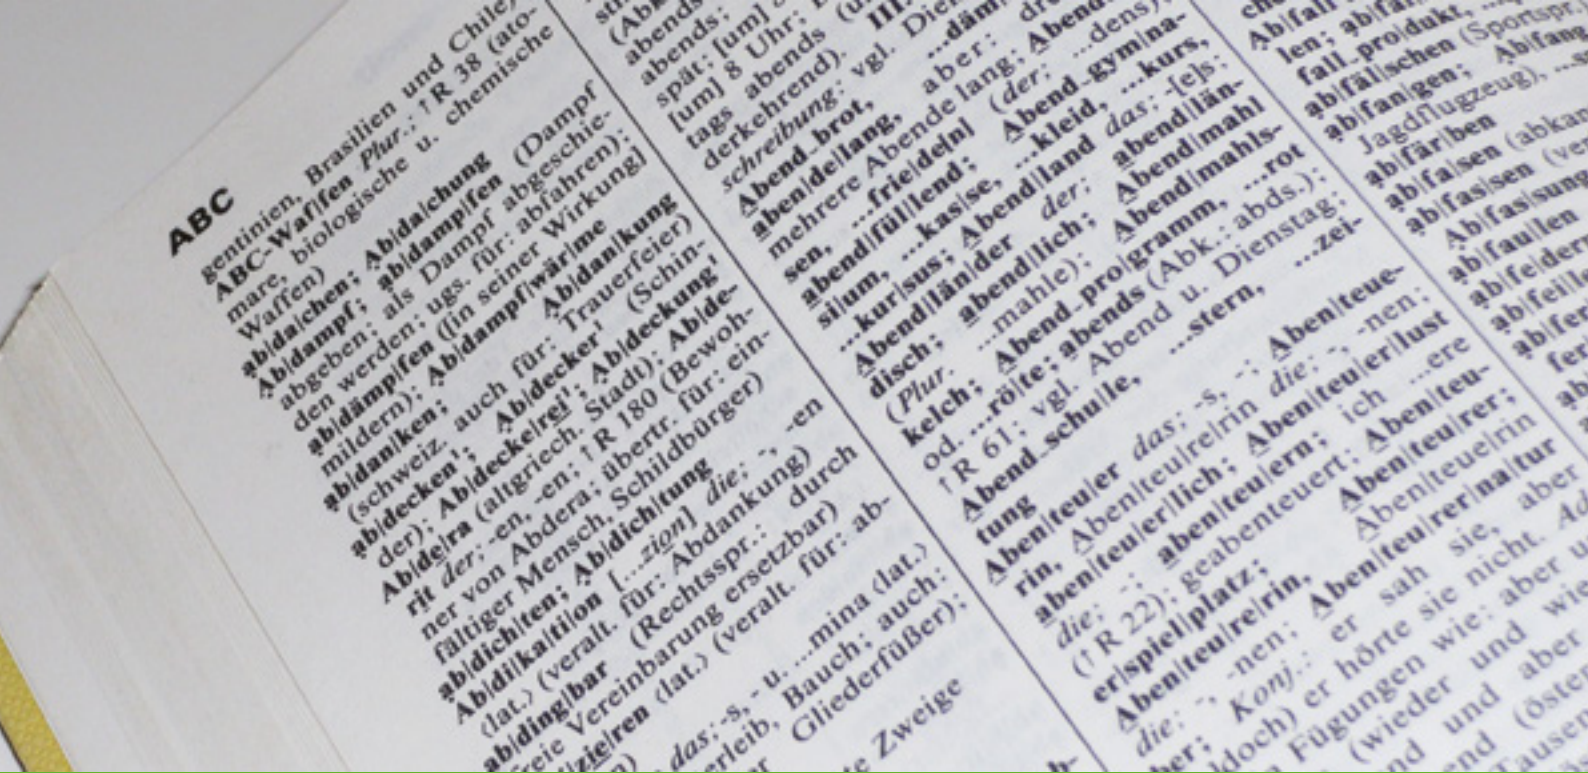 ABC
gentinien, Brasilien und Chile)
ABC-Waf|fen Plur.; ↑R 38 (ato-
mare, biologische u. chemische
Waffen)
ab|da|chen; Ab|da|chung
Ab|dampf; ab|damp|fen (Dampf
abgeben; als Dampf abgeschie-
den werden; ugs. für: abfahren);
ab|dämp|fen ([in seiner Wirkung]
mildern); Ab|dampf|wär|me
ab|dan|ken; Ab|dan|kung
(schweiz. auch für: Trauerfeier)
ab|decken¹; Ab|decker¹ (Schin-
der); Ab|decke|rei¹; Ab|deckung¹
Ab|de|ra (altgriech. Stadt); Ab|de-
rit der; -en, -en; ↑R 180 (Bewoh-
ner von Abdera; übertr. für: ein-
fältiger Mensch, Schildbürger)
ab|dich|ten; Ab|dich|tung
Ab|di|ka|ti|on [...zion] die; -, -en
(lat.) (veralt. für: Abdankung)
ab|ding|bar (Rechtsspr.: durch
freie Vereinbarung ersetzbar)
zie|ren (lat.) (veralt. für: ab-
das; -s, - u. ...mina (lat.)
Bauch; auch:
Gliederfüßer);
Zweige
abends;
abends;
spät; [um]
[um] 8 Uhr;
tags abends
derkehrend). III.
schreibung: vgl. Dien
Abend_brot, ...däm
aben|de|lang, aber: dre
mehrere Abende lang; Abend-
sen, ...frie|de[n] (der; ...dens);
abend|fül|lend; Abend_gym|na-
si|um, ...kas|se, ...kleid, ...kurs,
...kur|sus; Abend|land das; -[e]s;
Abend|län|der der; abend|län-
disch; abend|lich; Abend|mahl
(Plur. ...mahle); Abend|mahls-
kelch; Abend_pro|gramm, ...rot
od. ...rö|te; abends (Abk.: abds.);
↑R 61; vgl. Abend u. Dienstag;
Abend_schu|le, ...stern, ...zei-
tung
Aben|teu|er das; -s, -; Aben|teue-
rin, Aben|teu|re|rin die; -, -nen;
aben|teu|er|lich; Aben|teu|er|lust
die; -; aben|teu|ern; ich ...ere
(↑R 22); geabenteuert; Aben|teu-
er|spiel|platz; Aben|teu|rer;
Aben|teu|re|rin, Aben|teue|rin
die; -, -nen; Aben|teu|rer|na|tur
aber; Konj.: er sah sie, aber
doch) er hörte sie nicht.
Fügungen wie: aber
(wieder und wie
und aber
(öster
Ab|fall
len;
fall_pro|dukt,
ab|fäl|schen (Sportspr.)
ab|fan|gen; Ab|fang
Jagdflugzeug),
ab|fär|ben
ab|fa|sen (abkan
ab|fas|sen (ver
Ab|fas|sung
ab|fau|len
ab|fe|dern
ab|fei|len